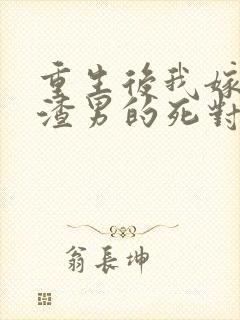 重生後我嫁
渣男的死對
翁長坤